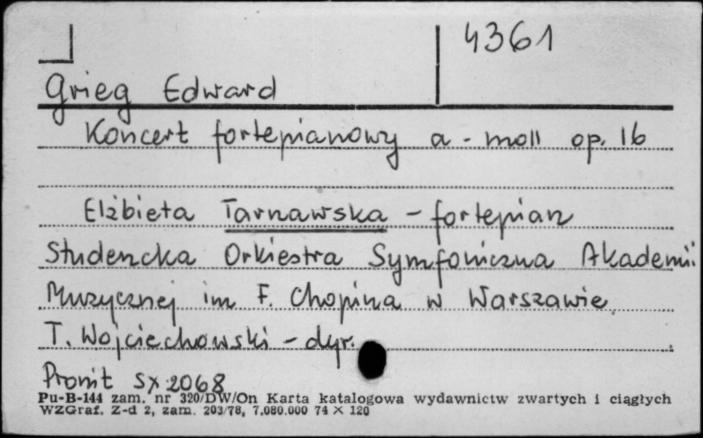 4361
Grieg Edward
Koncert fortepianowy a-moll op. 16
Elżbieta Tarnawska - fortepian
Studencka Orkiestra Symfoniczna Akademii
Muzycznej im F. Chopina w Warszawie
T. Wojciechowski - dyr.
Pronit SX 2068
Pu-B-144 zam. nr 320/DW/On Karta katalogowa wydawnictw zwartych i ciągłych
WZGraf. Z-d 2, zam. 203/78, 7.080.000 74 × 120